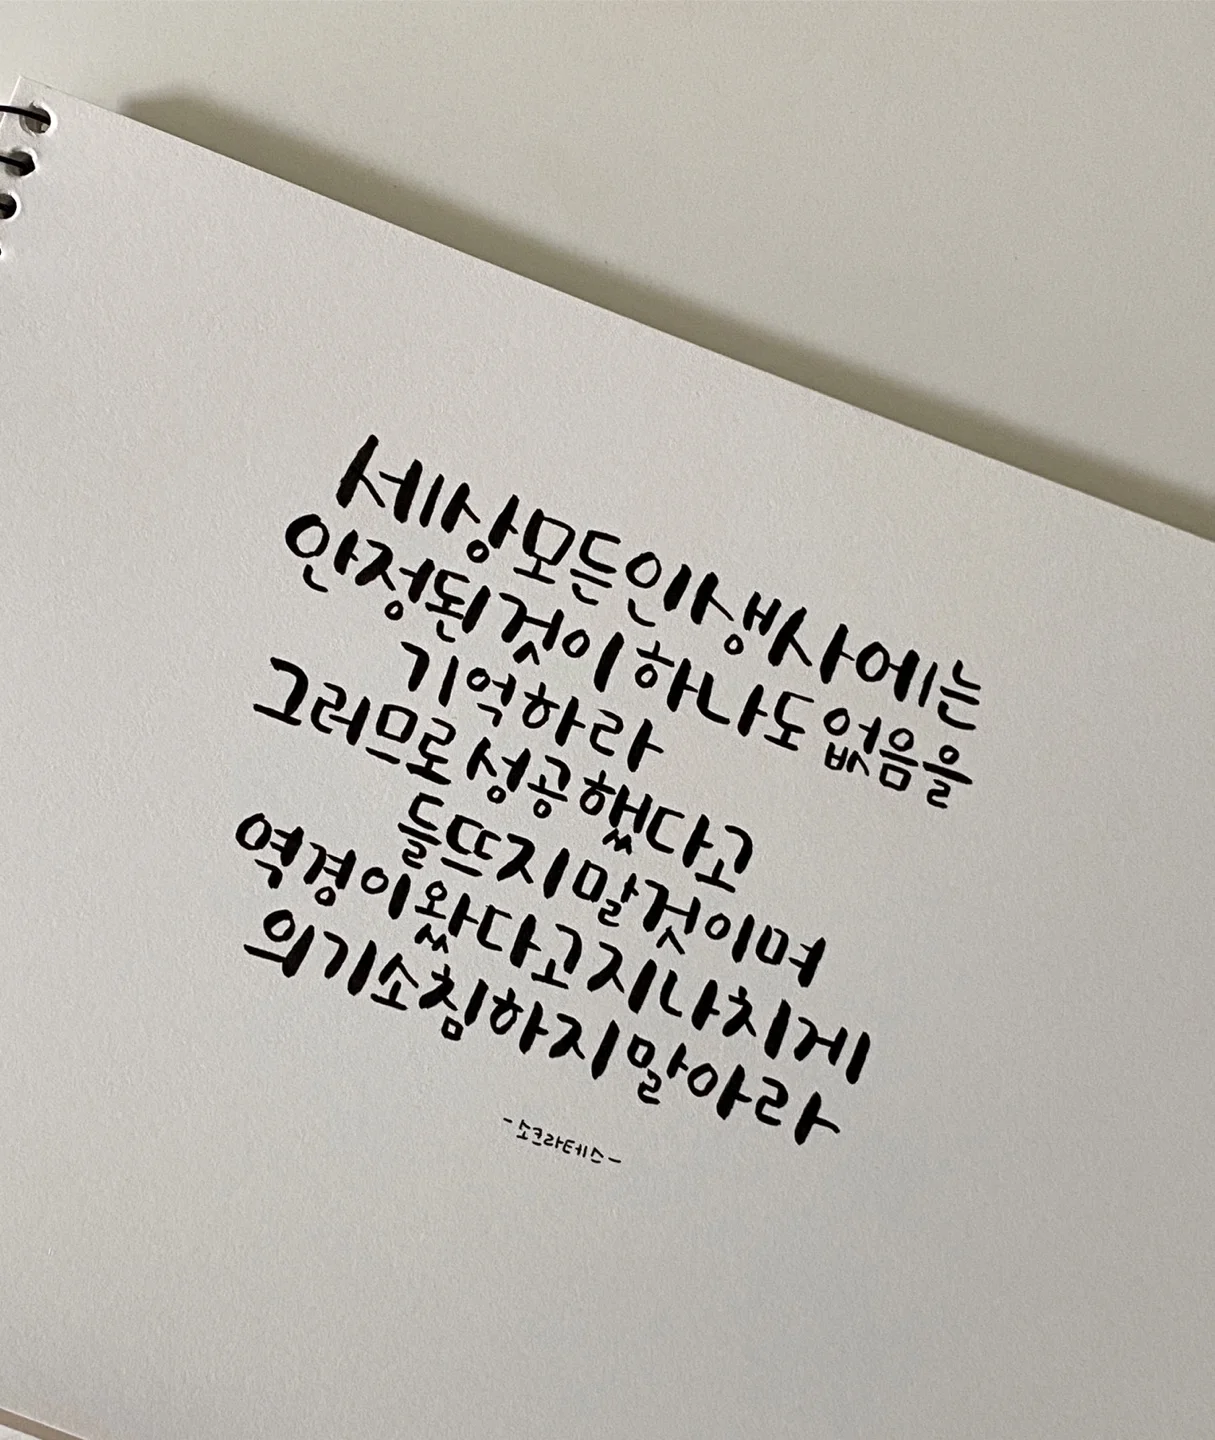 세상 모든 인생사에는
안정된 것이 하나도 없음을
기억하라
그러므로 성공했다고
들뜨지 말것이며
역경이 왔다고 지나치게
의기소침하지 말아라
-소크라테스-